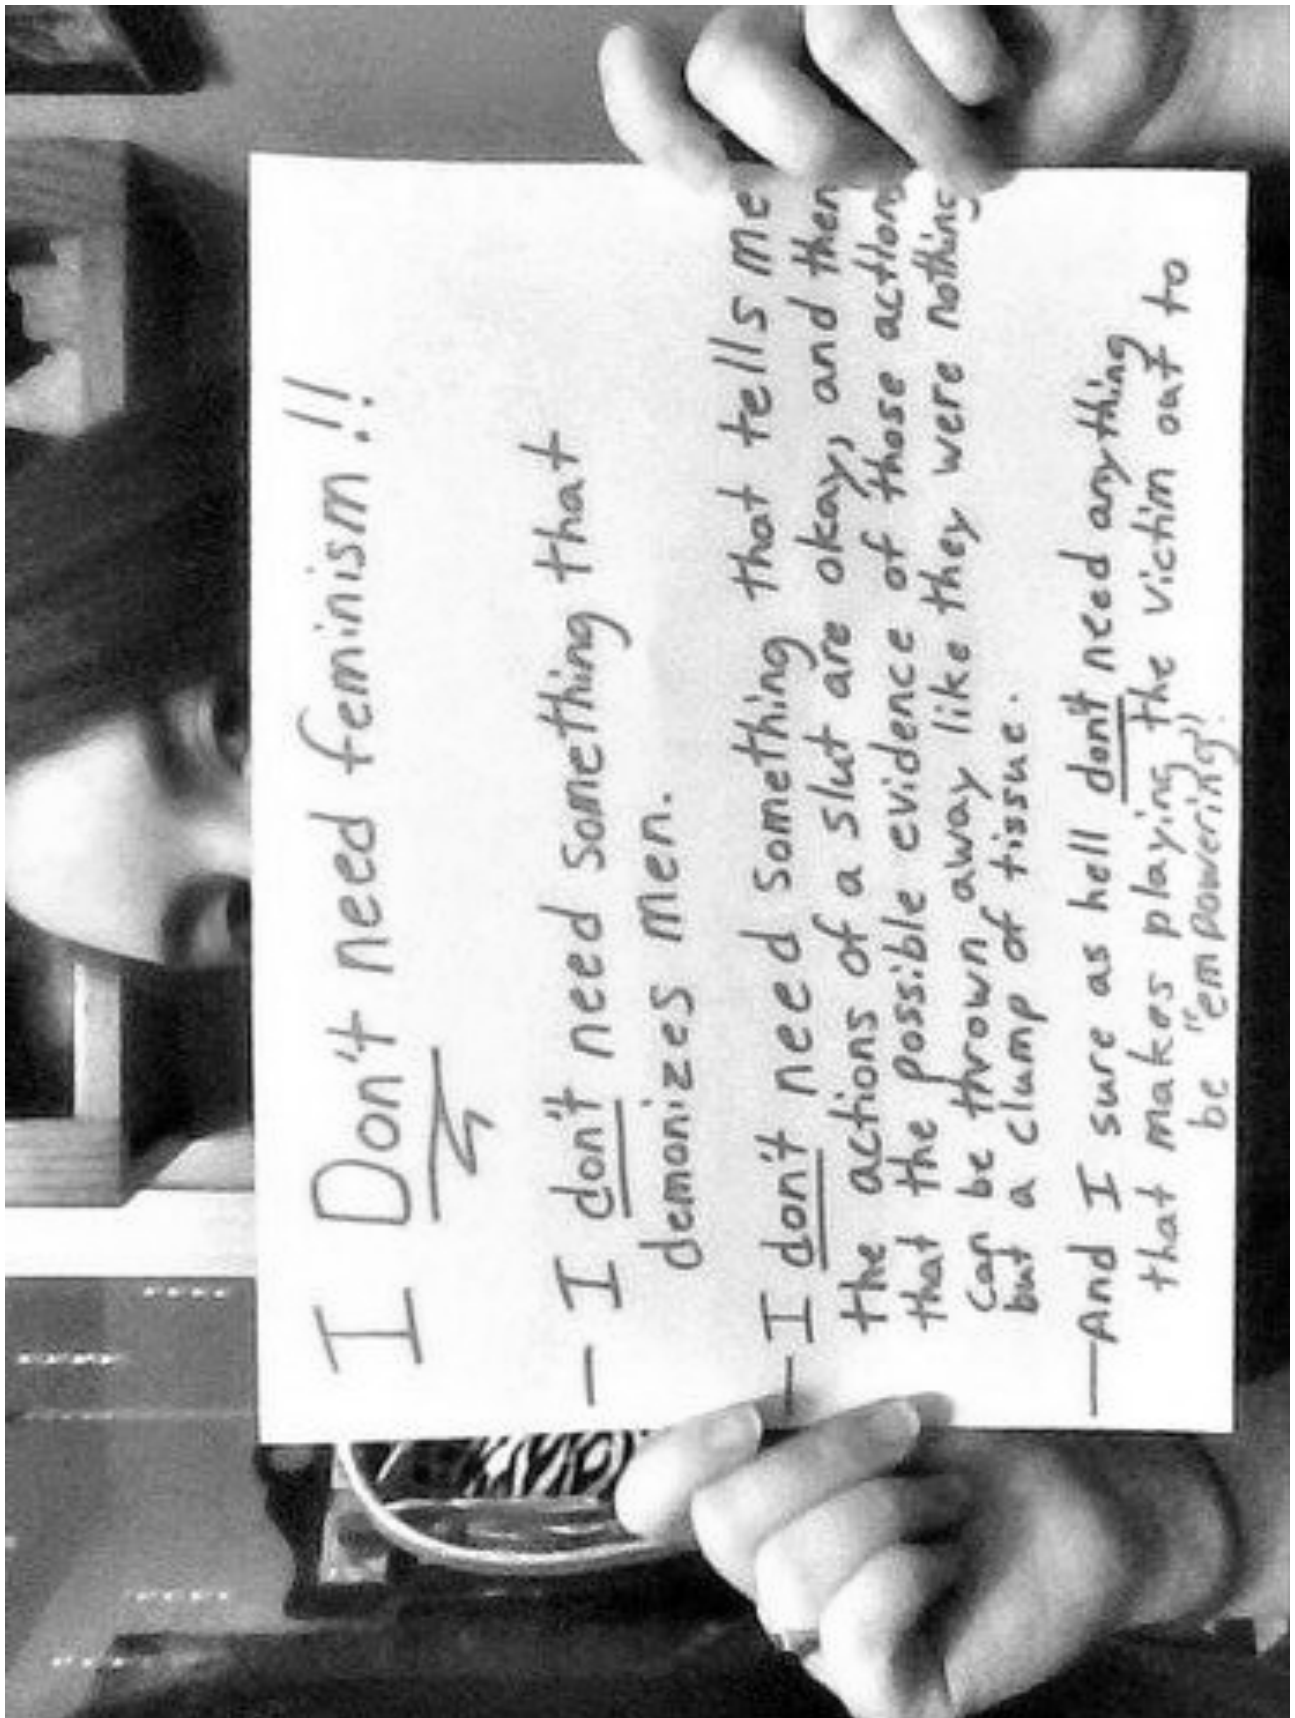 I Don't need feminism!!
— I don't need something that
demonizes men.
— I don't need something that tells me
the actions of a slut are okay, and then
that the possible evidence of those actions
can be thrown away like they were nothing
but a clump of tissue.
— And I sure as hell don't need anything
that makes playing the victim out to
be "empowering".